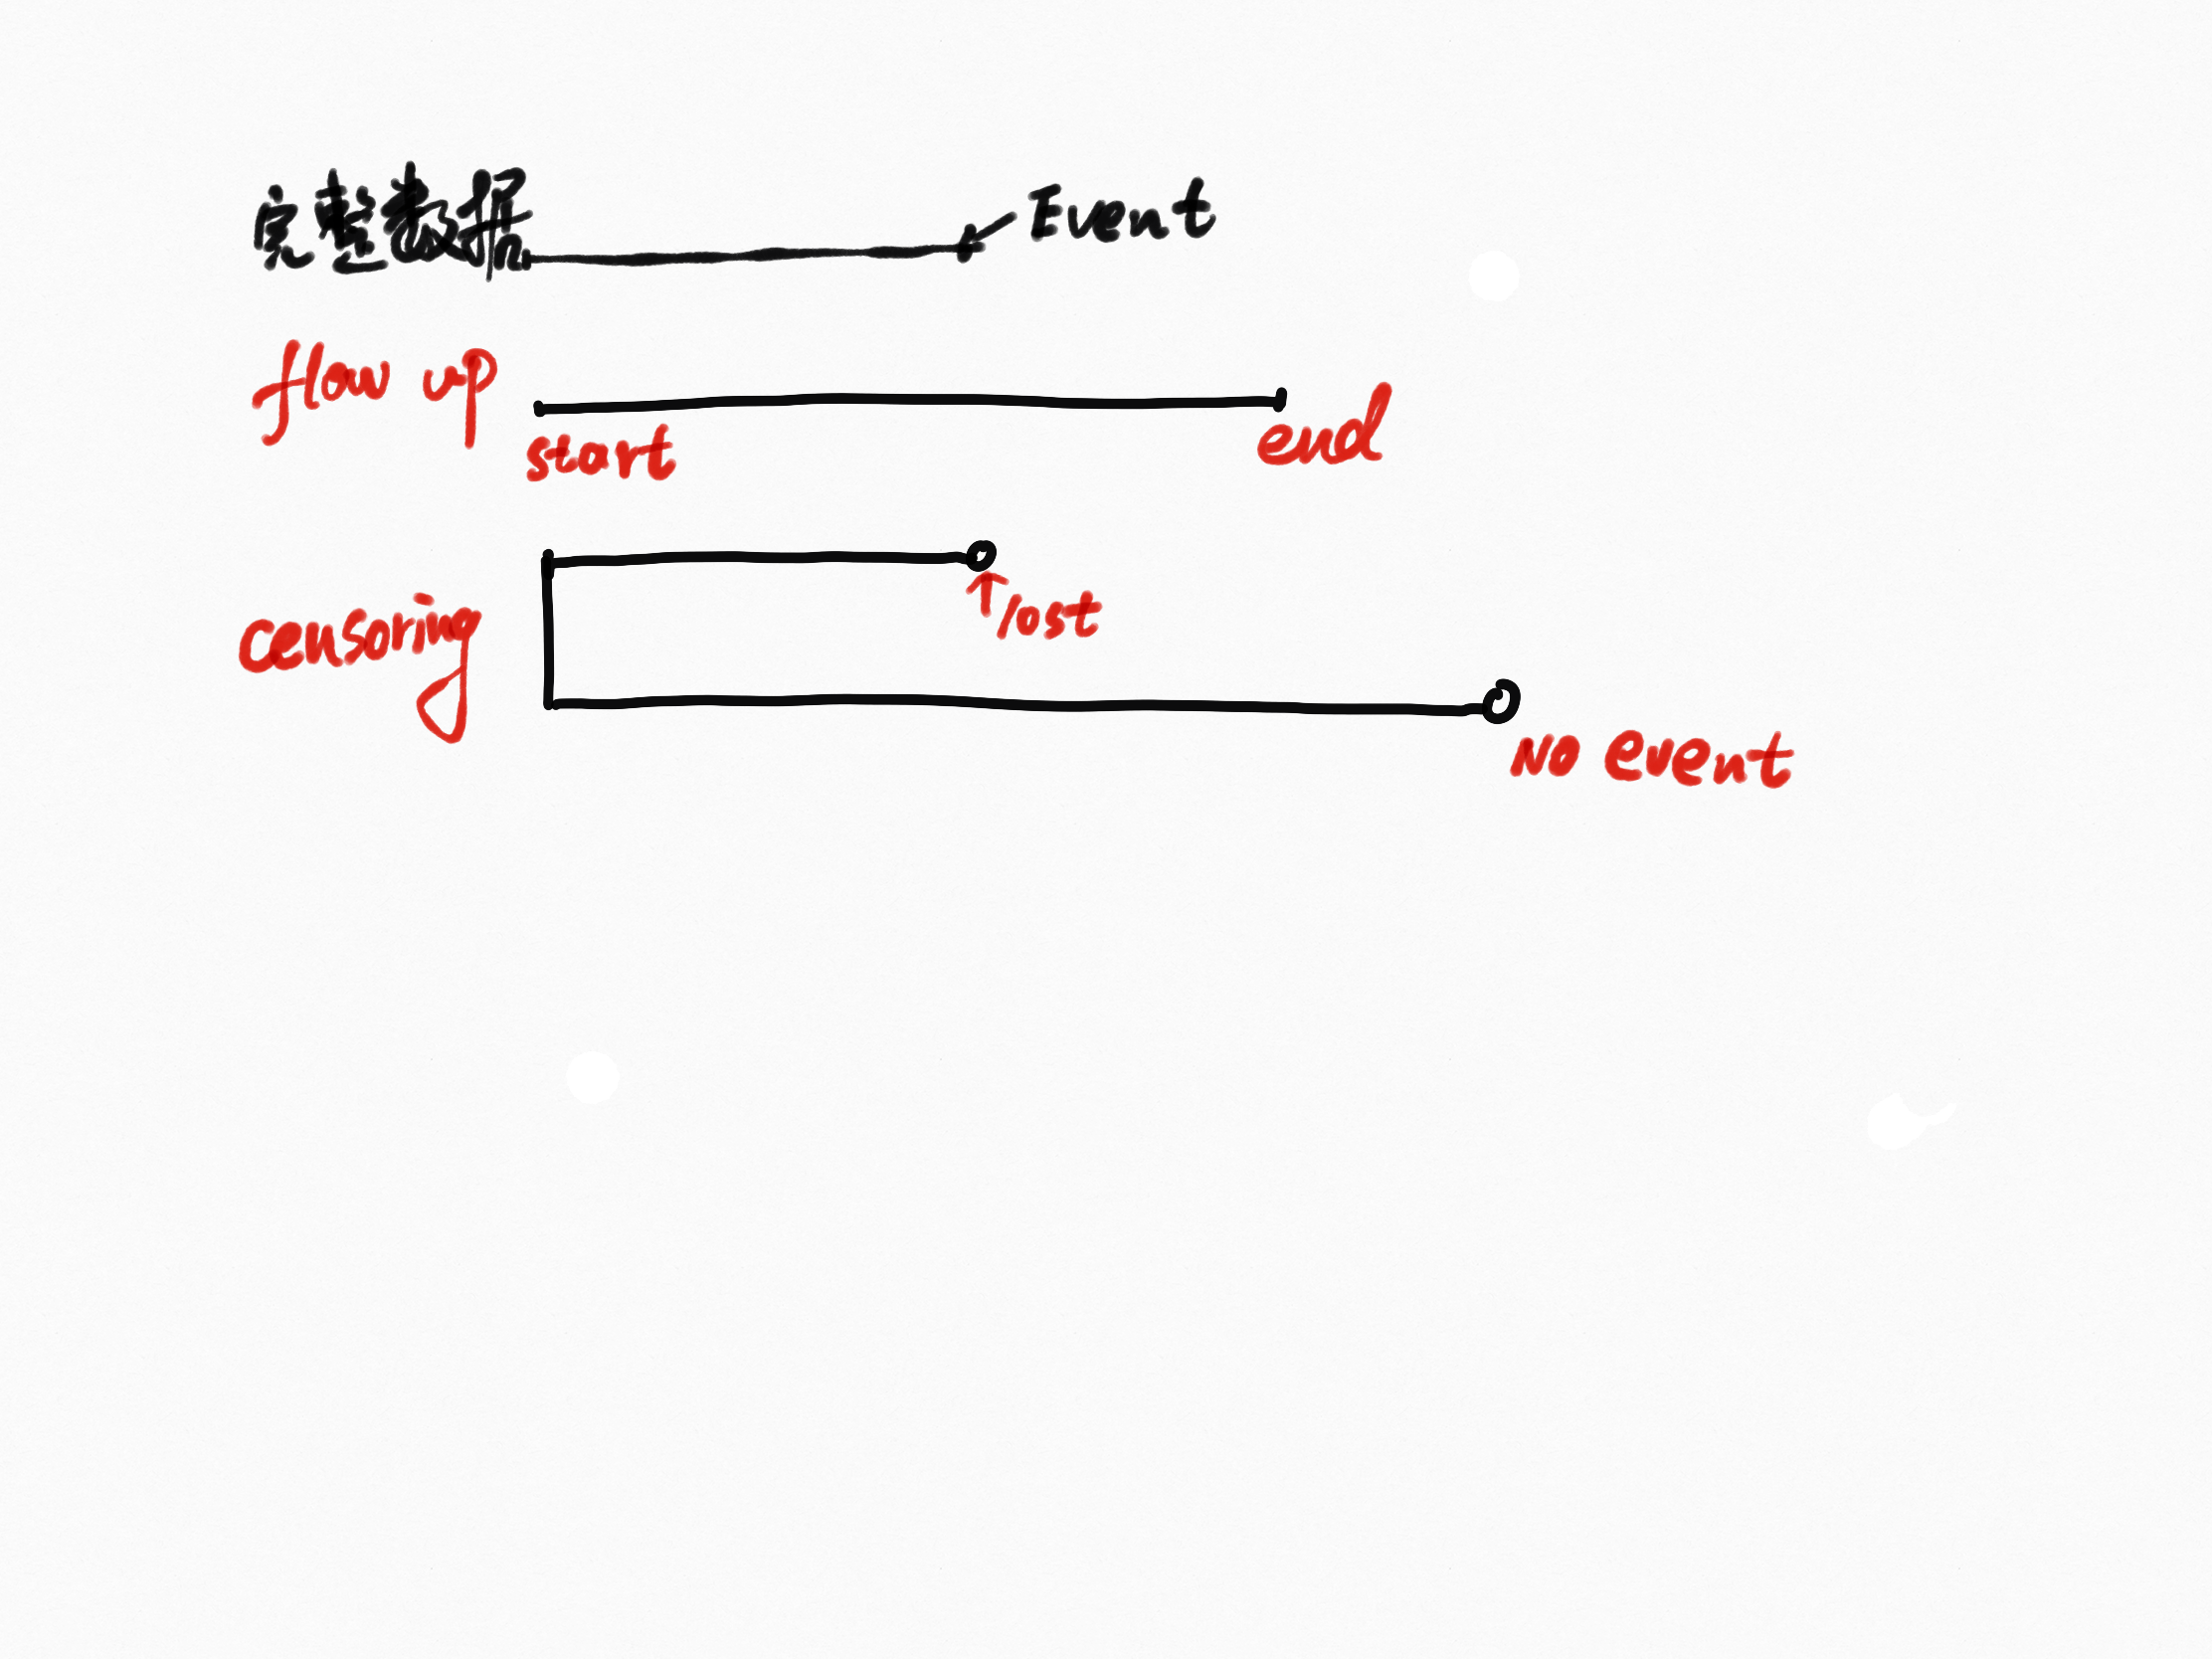 完整数据 Event
flow up
start end
lost
censoring
No event